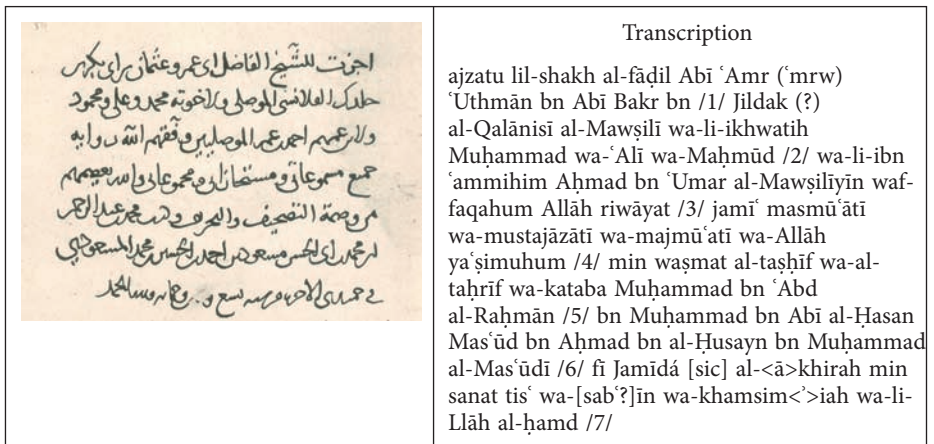 اجزت للشيخ الفاضل ابى عمرو عثمان بن ابى بكر بن
جلدك القلانسى الموصلى ولاخوته محمد وعلى ومحمود
ولابن عمهم احمد بن عمر الموصليين وفقهم الله روايه
جميع مسموعاتى ومستجازاتى ومجموعاتى والله يعصمهم
من وصمة التصحيف والتحريف وكتب محمد بن عبد الرحمن
بن محمد بن ابى الحسن مسعود بن احمد بن الحسين بن محمد المسعودى
فى جمدى الاخره من سنه تسع و وخمسمايه ولله الحمد
Transcription
ajzatu lil-shakh al-fāḍil Abī ʿAmr (ʿmrw)
ʿUthmān bn Abī Bakr bn /1/ Jildak (?)
al-Qalānisī al-Mawṣilī wa-li-ikhwatih
Muḥammad wa-ʿAlī wa-Maḥmūd /2/ wa-li-ibn
ʿammihim Aḥmad bn ʿUmar al-Mawṣilīyīn waf-
faqahum Allāh riwāyat /3/ jamīʿ masmūʿātī
wa-mustajāzātī wa-majmūʿatī wa-Allāh
yaʿṣimuhum /4/ min waṣmat al-taṣḥīf wa-al-
taḥrīf wa-kataba Muḥammad bn ʿAbd
al-Raḥmān /5/ bn Muḥammad bn Abī al-Ḥasan
Masʿūd bn Aḥmad bn al-Ḥusayn bn Muḥammad
al-Masʿūdī /6/ fī Jamīdá [sic] al-<ā>khirah min
sanat tisʿ wa-[sabʿ?]īn wa-khamsim<ʾ>iah wa-li-
Llāh al-ḥamd /7/